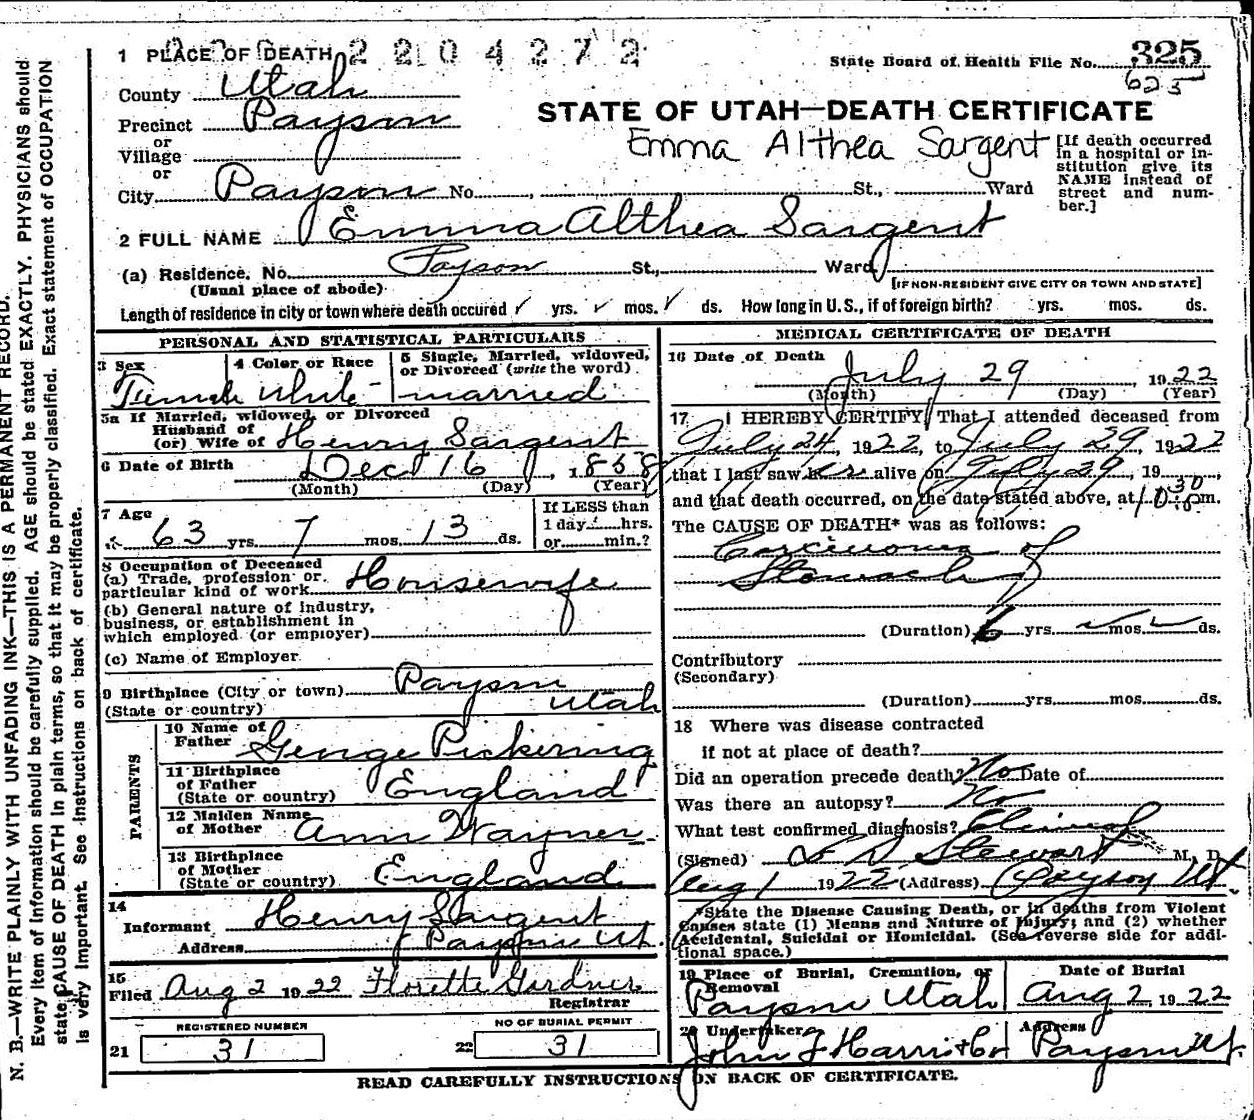 1 PLACE OF DEATH 2 2 0 4 2 7 2
State Board of Health File No. 325
625
County Utah
Precinct Payson
or
Village
or
City Payson No. , St., Ward
STATE OF UTAH—DEATH CERTIFICATE
Emma Althea Sargent
[If death occurred
in a hospital or in-
stitution give its
NAME instead of
street and num-
ber.]
2 FULL NAME Emma Althea Sargent
(a) Residence. No. Payson St., Ward
(Usual place of abode)
[IF NON-RESIDENT GIVE CITY OR TOWN AND STATE]
Length of residence in city or town where death occured ✓ yrs. ✓ mos. ✓ ds. How long in U.S., if of foreign birth? yrs. mos. ds.
PERSONAL AND STATISTICAL PARTICULARS
3 Sex
Female
4 Color or Race
White
5 Single, Married, widowed,
or Divorced (write the word)
married
5a If Married, widowed, or Divorced
Husband of
(or) Wife of Henry Sargent
6 Date of Birth Dec 16, 1858
(Month) (Day) (Year)
7 Age
63 yrs. 7 mos. 13 ds.
If LESS than
1 day hrs.
or min.?
8 Occupation of Deceased
(a) Trade, profession or
particular kind of work Housewife
(b) General nature of industry,
business, or establishment in
which employed (or employer)
(c) Name of Employer
9 Birthplace (City or town) Payson
(State or country) Utah
PARENTS
10 Name of
Father George Pickering
11 Birthplace
of Father
(State or country) England
12 Maiden Name
of Mother Ann Wagner
13 Birthplace
of Mother
(State or country) England
14
Informant Henry Sargent
Address Payson Ut.
15
Filed Aug 2 1922 Florette Gardner
Registrar
REGISTERED NUMBER
21 31
NO OF BURIAL PERMIT
22 31
MEDICAL CERTIFICATE OF DEATH
16 Date of Death
July 29, 1922
(Month) (Day) (Year)
17 I HEREBY CERTIFY, That I attended deceased from
July 24, 1922, to July 29, 1922
that I last saw her alive on July 29, 19
and that death occurred, on the date stated above, at 10 30 p.m.
The CAUSE OF DEATH* was as follows:
Carcinoma of
Stomach
(Duration) 6 yrs. mos. ds.
Contributory
(Secondary)
(Duration) yrs. mos. ds.
18 Where was disease contracted
if not at place of death?
Did an operation precede death? No Date of
Was there an autopsy? No
What test confirmed diagnosis? Clinical
(Signed) L D Stewart M. D.
Aug 1 1922 (Address) Payson Ut
*State the Disease Causing Death, or in deaths from Violent
Causes state (1) Means and Nature of Injury; and (2) whether
Accidental, Suicidal or Homicidal. (See reverse side for addi-
tional space.)
19 Place of Burial, Cremation, or
Removal
Payson Utah
Date of Burial
Aug 2 1922
20 Undertaker
John F Harris & Co
Address
Payson Ut.
READ CAREFULLY INSTRUCTIONS ON BACK OF CERTIFICATE.
N. B.—WRITE PLAINLY WITH UNFADING INK—THIS IS A PERMANENT RECORD.
Every item of Information should be carefully supplied. AGE should be stated EXACTLY. PHYSICIANS should
state CAUSE OF DEATH in plain terms, so that it may be properly classified. Exact statement of OCCUPATION
is very important. See instructions on back of certificate.